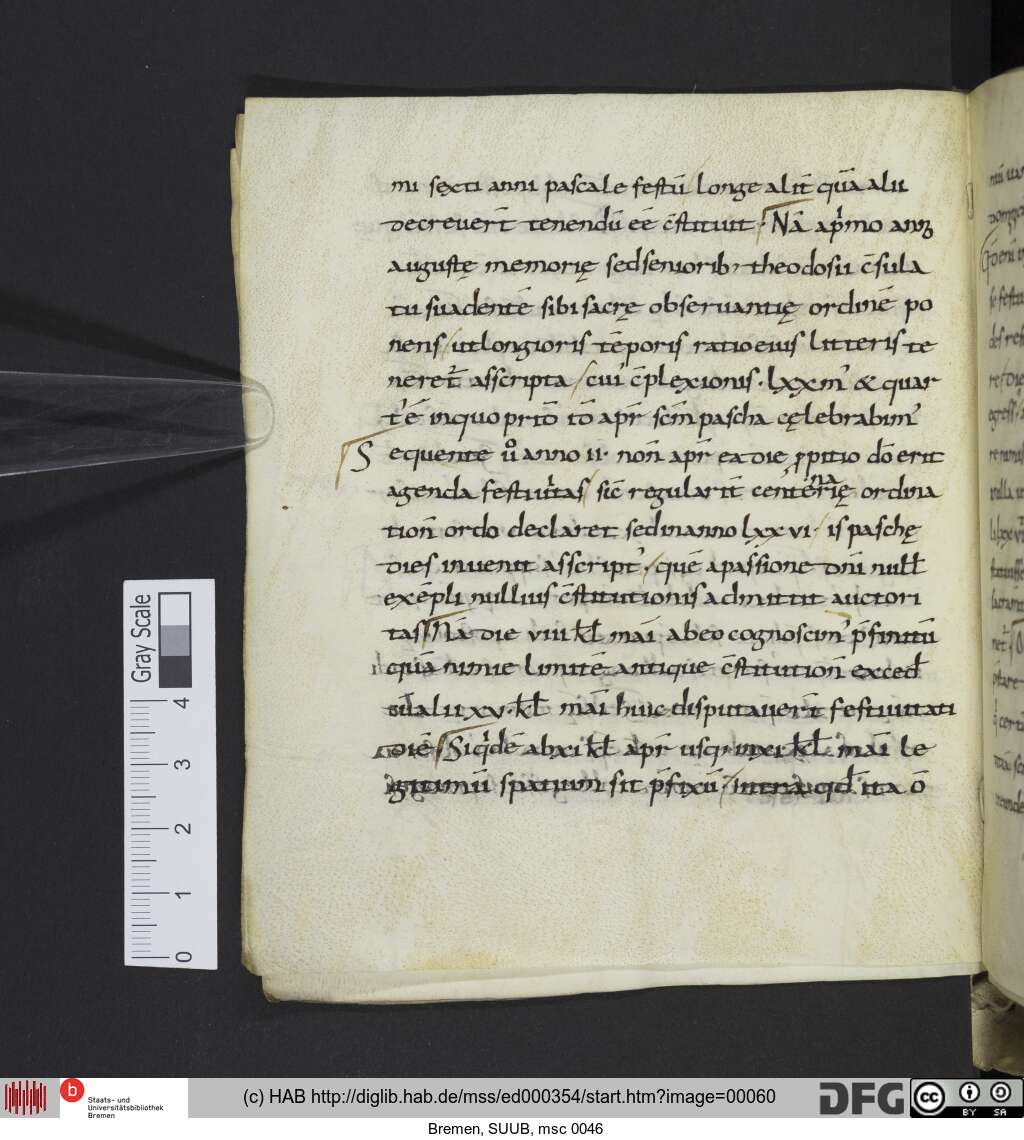 mi sexti anni pascale festū longe alit̄ quā alii
decreverīt tenendū eē c̄stituit · Nā a p̍mo anno
augustę memorię sed seniorib; theodosii c̄sula
tu suadentē sibi sacrę observantię ordinē po
nens / ut longioris tēporis ratio eius litteris te
neret᷒ asscripta / cui᷒ c̄plexionis · lxxm᷒ & quar
t᷒ ē in quo prīo id̄ apr̄ scm̄ pascha cęlebrabim᷒
Sequente ūo anno ii · non̄ apr̄ ea die ꝓpitio dō erit
agenda festivitas / sic̄ regularit̄ centenarię ordina
tion̄ ordo declaret sed in anno lxxvi / is paschę
dies invenit asscript᷒ / quē a passione dn̄i null̄
exēpli nullius c̄stitutionis admittit auctori
tas / Nā die viii kl̄ mai̅ ab eo cognoscim᷒ p̄finitū
quā nimie limitē antique c̄stitution̄ exced̄
alii xv · kl̄ mai̅ huic disputaverīt festivitati
diē / Siq̍dē ab xi kl̄ apr̄ usq; in xi kl̄ mai̅ le
gitimū spatium sit p̄fixū / intra qd̄ ita ō
Gray Scale
4
3
2
1
0
b
Staats- und
Universitätsbibliothek
Bremen
(c) HAB http://diglib.hab.de/mss/ed000354/start.htm?image=00060
DFG
cc
BY SA
Bremen, SUUB, msc 0046